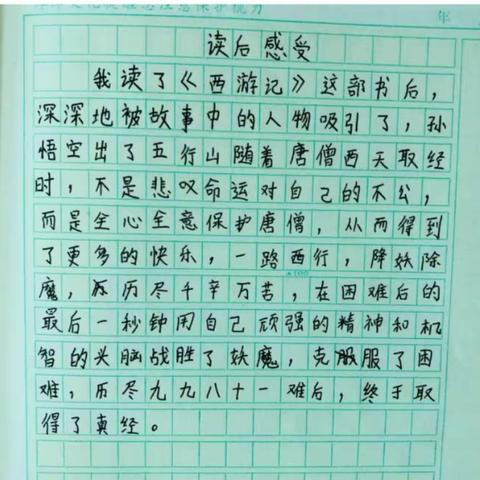 读后感受
我读了《西游记》这部书后，
深深地被故事中的人物吸引了，孙
悟空出了五行山随着唐僧西天取经
时，不是悲叹命运对自己的不公，
而是全心全意保护唐僧，从而得到
了更多的快乐，一路西行，降妖除
魔，历尽千辛万苦，在困难后的
最后一秒钟用自己顽强的精神和机
智的头脑战胜了妖魔，克服服了困
难，历尽九九八十一难后，终于取
得了真经。